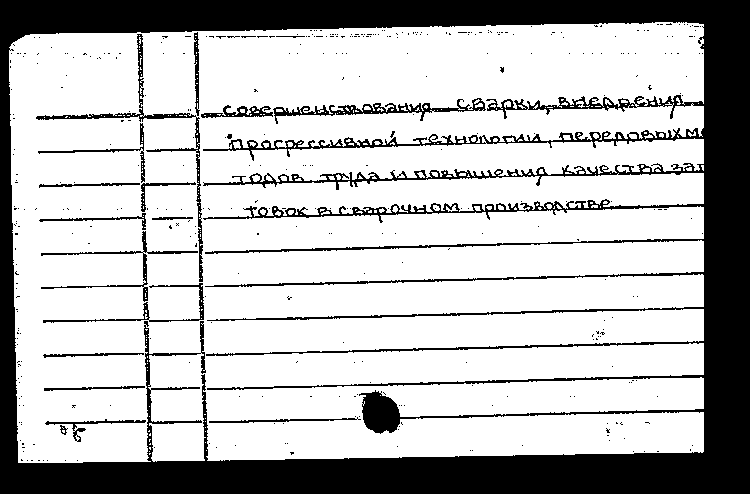 совершенствования сварки, внедрения
прогрессивной технологии, передовых ме
тодов труда и повышения качества заг
товок в сварочном производстве